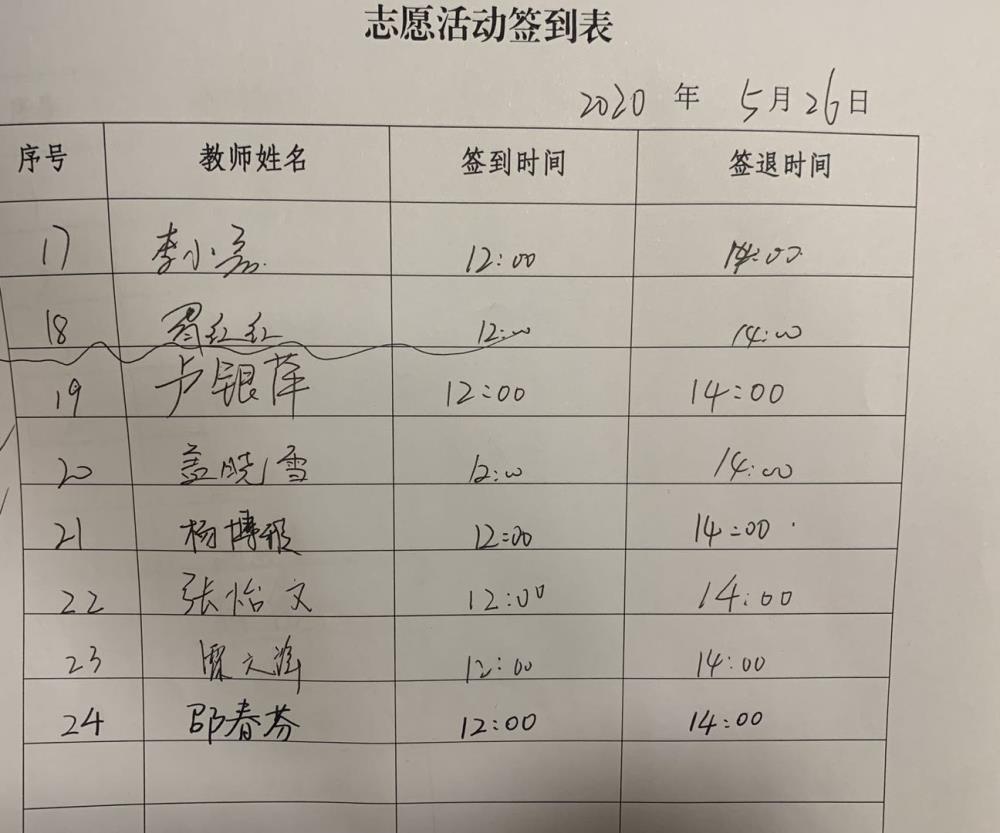 志愿活动签到表
2020 年 5月26日
序号 教师姓名 签到时间 签退时间
17 李小 12:00 14:00
18 红红 12:00 14:00
19 卢银萍 12:00 14:00
20 孟晓雪 12:00 14:00
21 杨博雅 12:00 14:00
22 张怡文 12:00 14:00
23 文 12:00 14:00
24 邵春芬 12:00 14:00